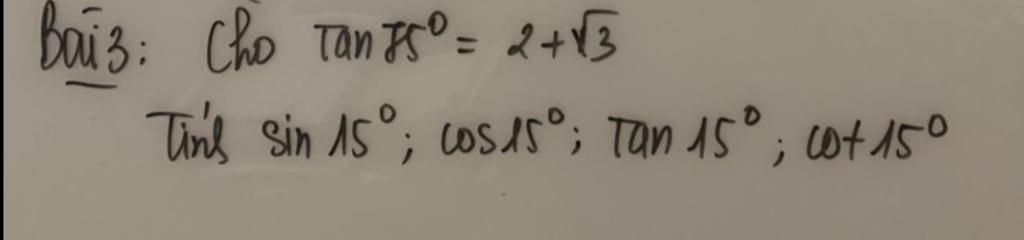 Bài 3: Cho Tan 75⁰ = 2 + √3
Tính sin 15⁰; cos 15⁰; Tan 15⁰; cot 15⁰